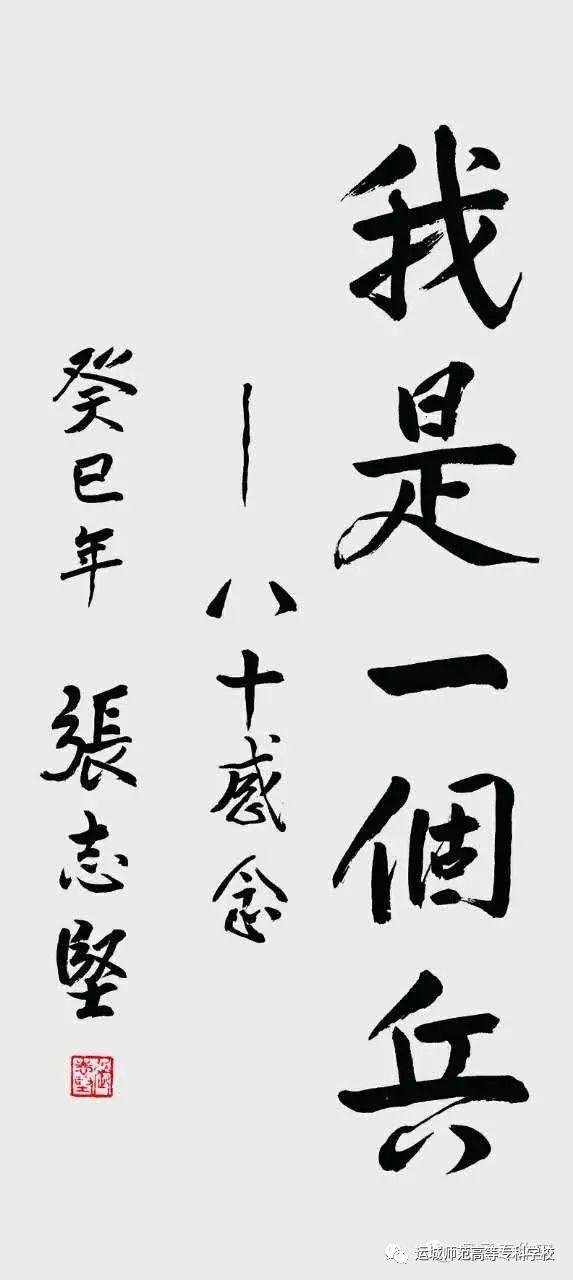 我是一個兵
—八十感念
癸巳年 張志堅
运城师范高等专科学校